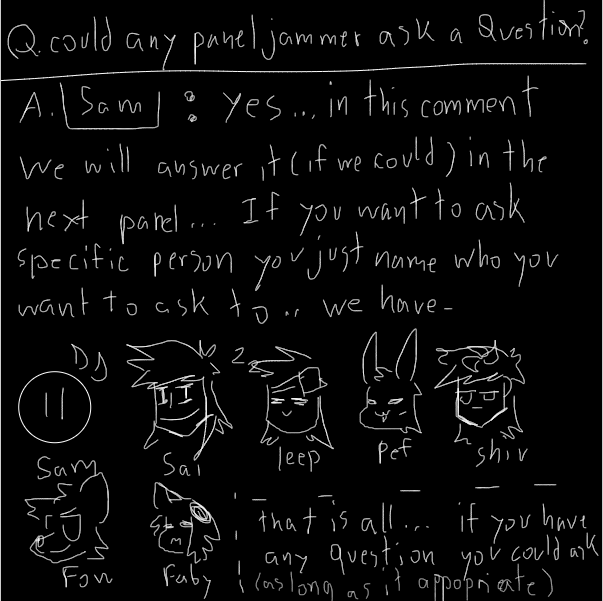 Q. could any panel jammer ask a Question?
A. Sam : Yes... in this comment
we will answer it (if we could) in the
next panel... If you want to ask
specific person you just name who you
want to ask to.. we have-
DJ
Sam Sai leep Pef shiv
Fon Faby
that is all... if you have
any question you could ask
(as long as it appopriate)